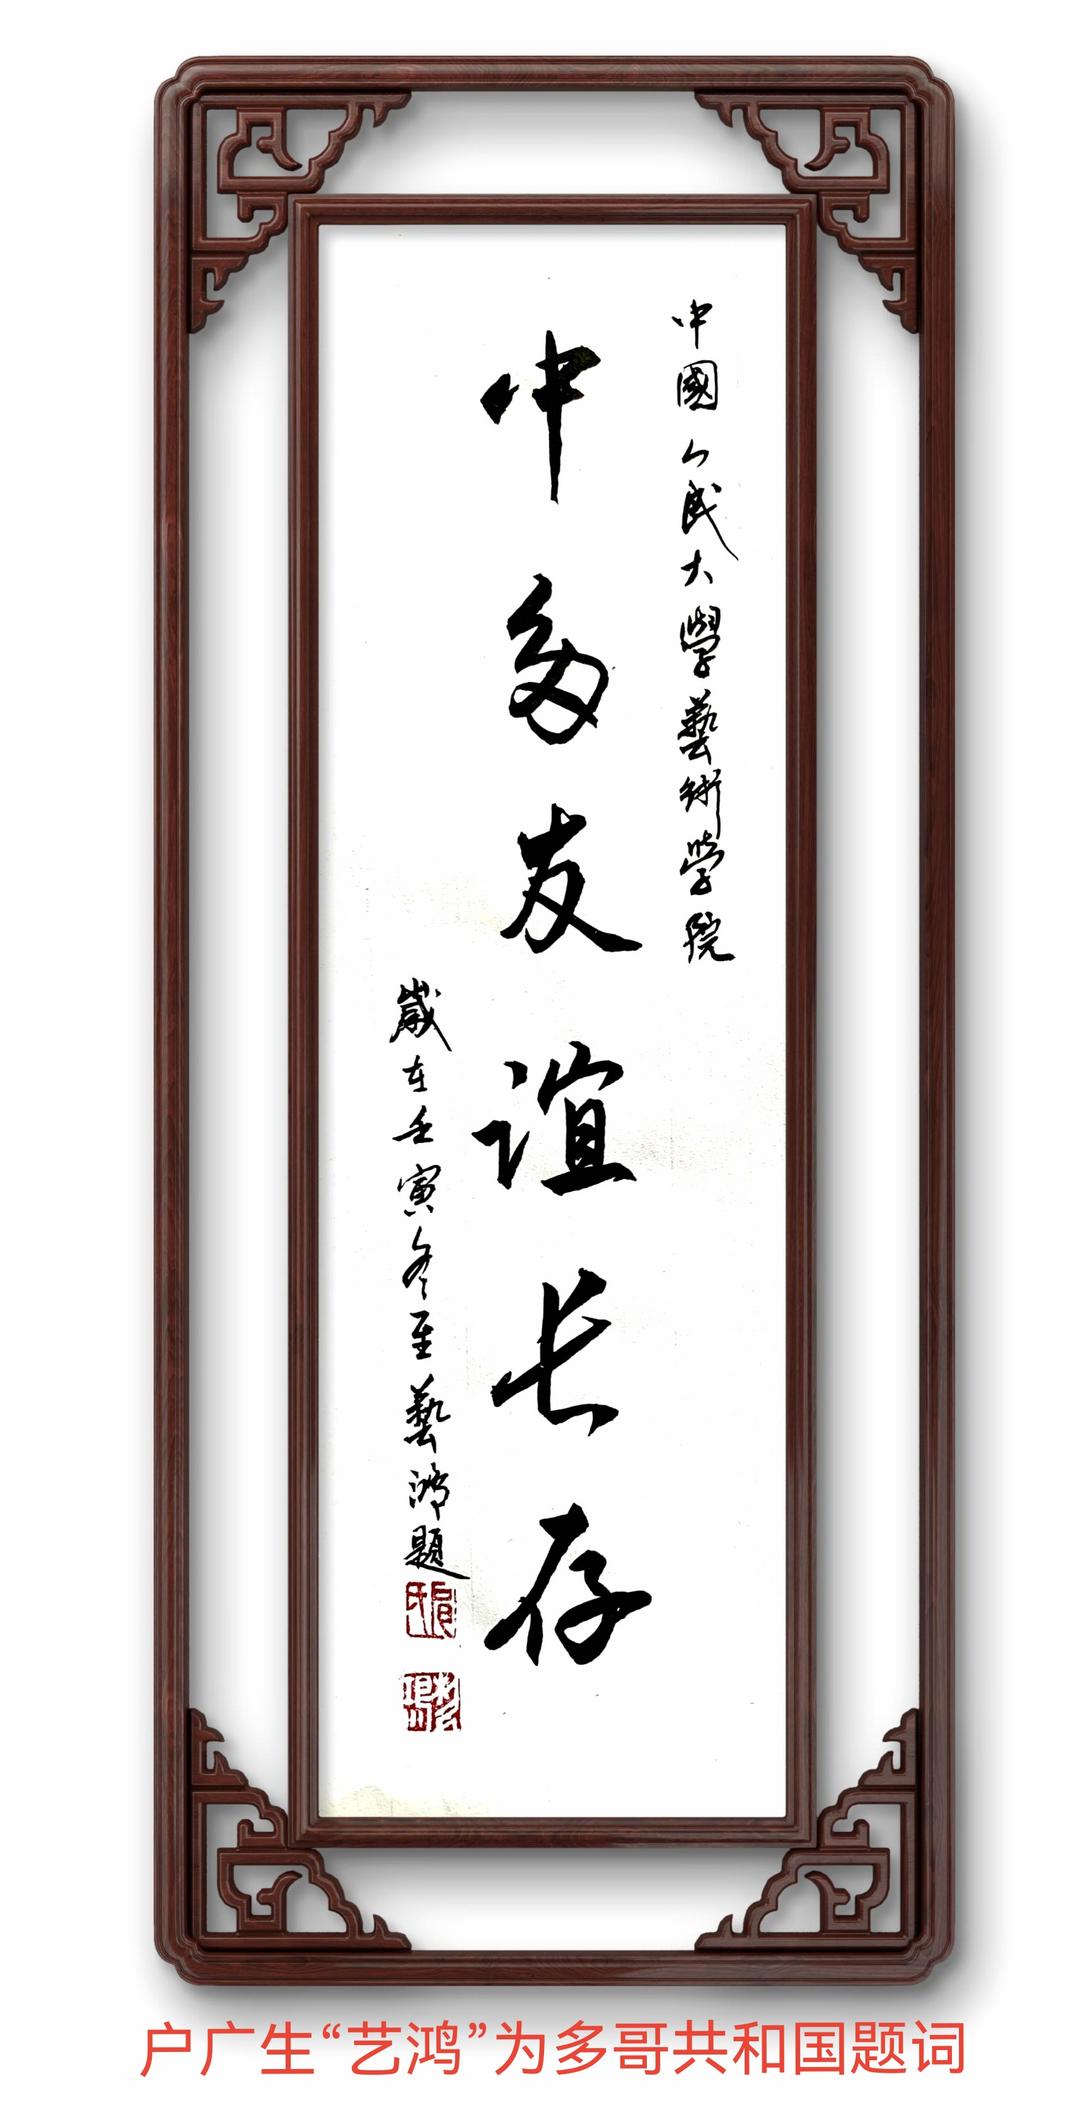 中國人民大學藝術學院
中多友谊长存
歲在壬寅冬至藝鴻題
户广生“艺鸿”为多哥共和国题词